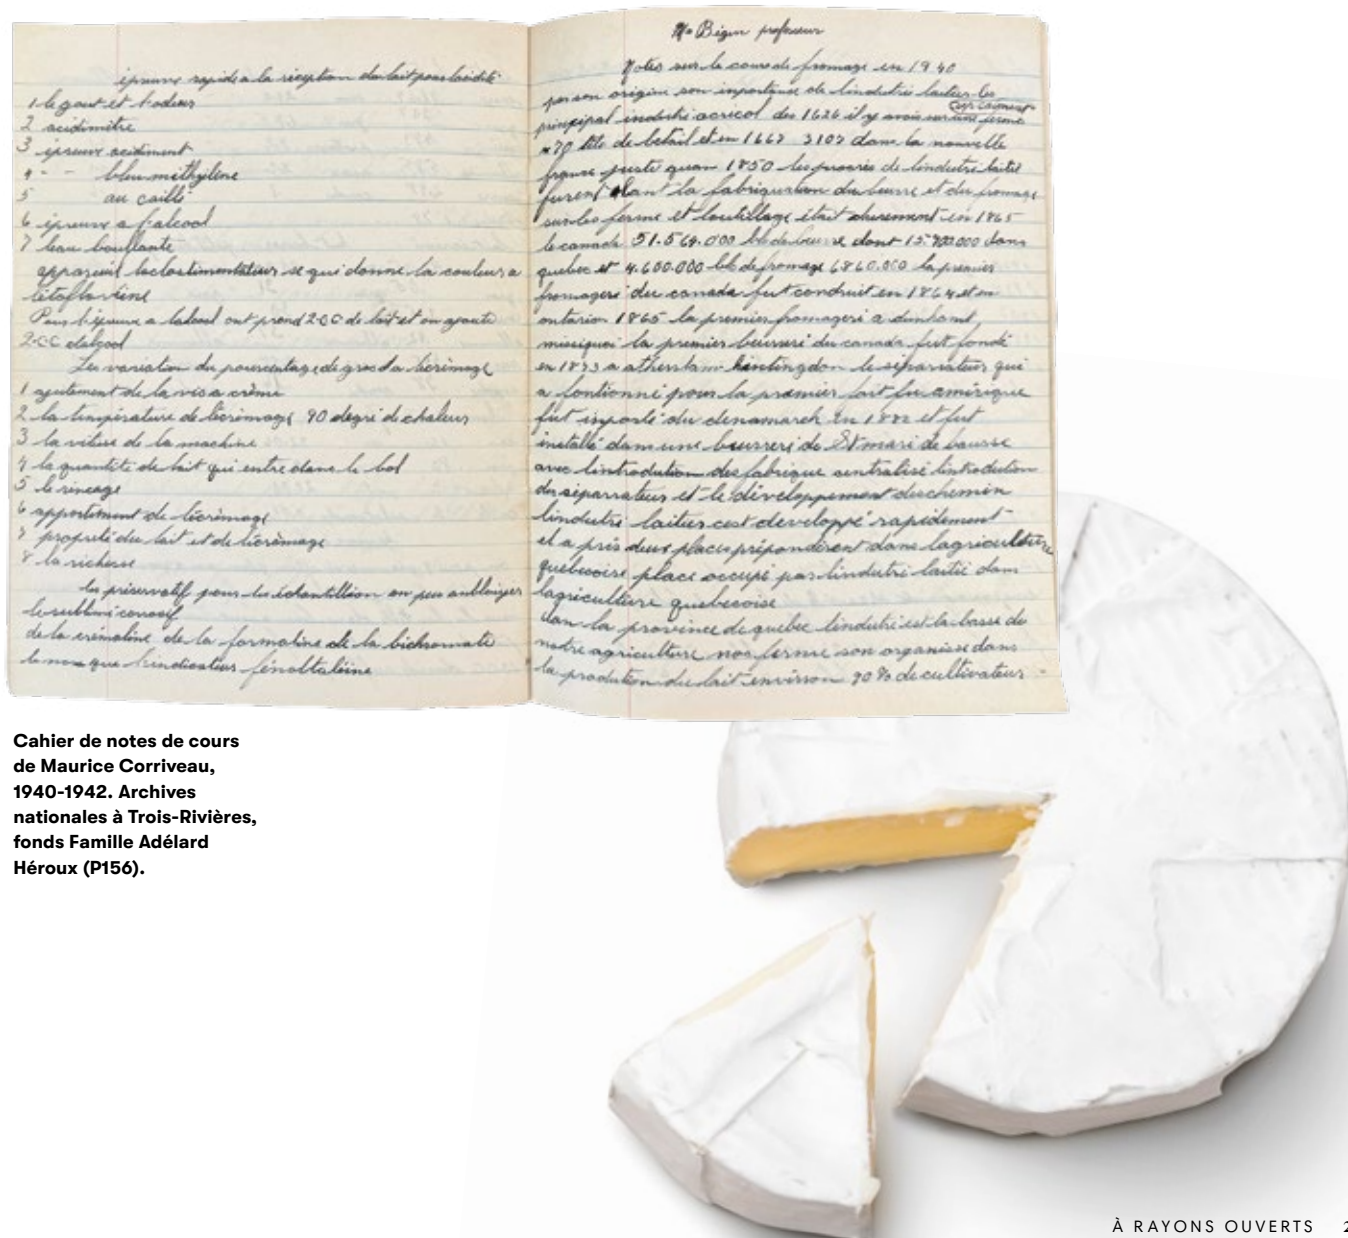 épreuve rapide a la réception du lait pour lacidité
1 le gout et lodeur
2 acidimitre
3 épreuve acidiment
4 - - bleu méthylène
5 au caillé
6 épreuve a lalcool
7 leau bouillante
appareuil se qui donne la couleur a
Pour lépreuve a lalcool ont prend 2-CC de lait et on ajoute
2-CC dalcool
Les variation du pourcentage de gras da lécrémage
1 ajustement de la vis a crème
2 la température de lécrémage 90 degré de chaleur
3 la vitesse de la machine
4 la quantité de lait qui entre dans le bol
5 le rincage
6 de lécrémage
7 propreté du lait et de lécrémage
8 la richesse
les préservatif pour les échantillion on peu
le sublimé corosif
de la de la formaline de la bichromate
lindicateur
Mr Bégin professeur
Notes sur le cours de fromage en 1940
par son origine son importance de lindustrie laitier les
principal industri acricol des 1626 il y avais sur une ferme
70 tête de bétail et en 1667 3107 dans la nouvelle
france juste quan 1850 les progrès de lindustri laitié
furent lant la fabriquation du beurre et du fromage
sur les ferme et loutillage était en 1865
le canada 51.564.000 lb de beurre dont 15.900.000 dans
quebec et 4.600.000 lb de fromage 6860.000 la premier
fromageri du canada fut conduit en 1864 et en
ontarion 1865 la premier fromageri a dunham
missiquoi la premier beurreri du canada fut fondé
en 1873 a athelstam hintingdon le séparateur qui
a fontionné pour la premier fait en amérique
fut inporté du denamarck en 1882 et fut
installé dans une beurreri de St mari de beausse
avec lintrodution des fabrique sentralisé lintrodution
du séparrateur et le développement du chemin
lindustri laitier cest développé rapidement
et a pris deux places prépondérent dans lagriculture
quebecoise place occupé par lindustri laitié dans
lagriculture quebecoise
dan la province de quebec lindustri est la basse de
notre agriculture nos ferme son organisé dans
la prodution du lait environ 90% de cultivateur
Cahier de notes de cours
de Maurice Corriveau,
1940-1942. Archives
nationales à Trois-Rivières,
fonds Famille Adélard
Héroux (P156).
À RAYONS OUVERTS 2